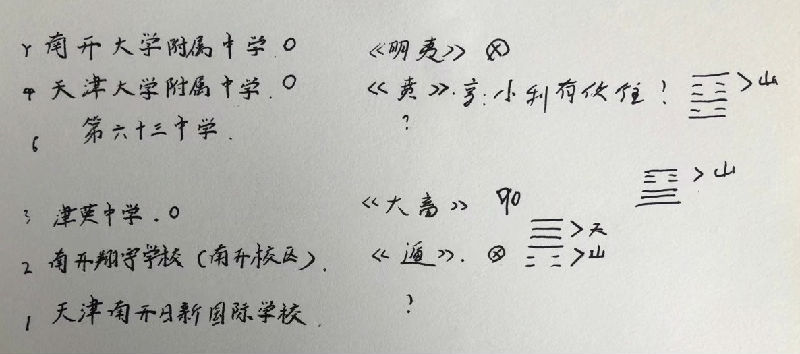 Y 南开大学附属中学.O 《明夷》⊗
4 天津大学附属中学.O 《贲》.亨:小利有攸往! >山
6 第六十三中学. ?
>山
3 津英中学.O 《大畜》 90
>天
2 南开翔宇学校(南开校区). 《遁》. ⊗ >山
1 天津南开日新国际学校. ?